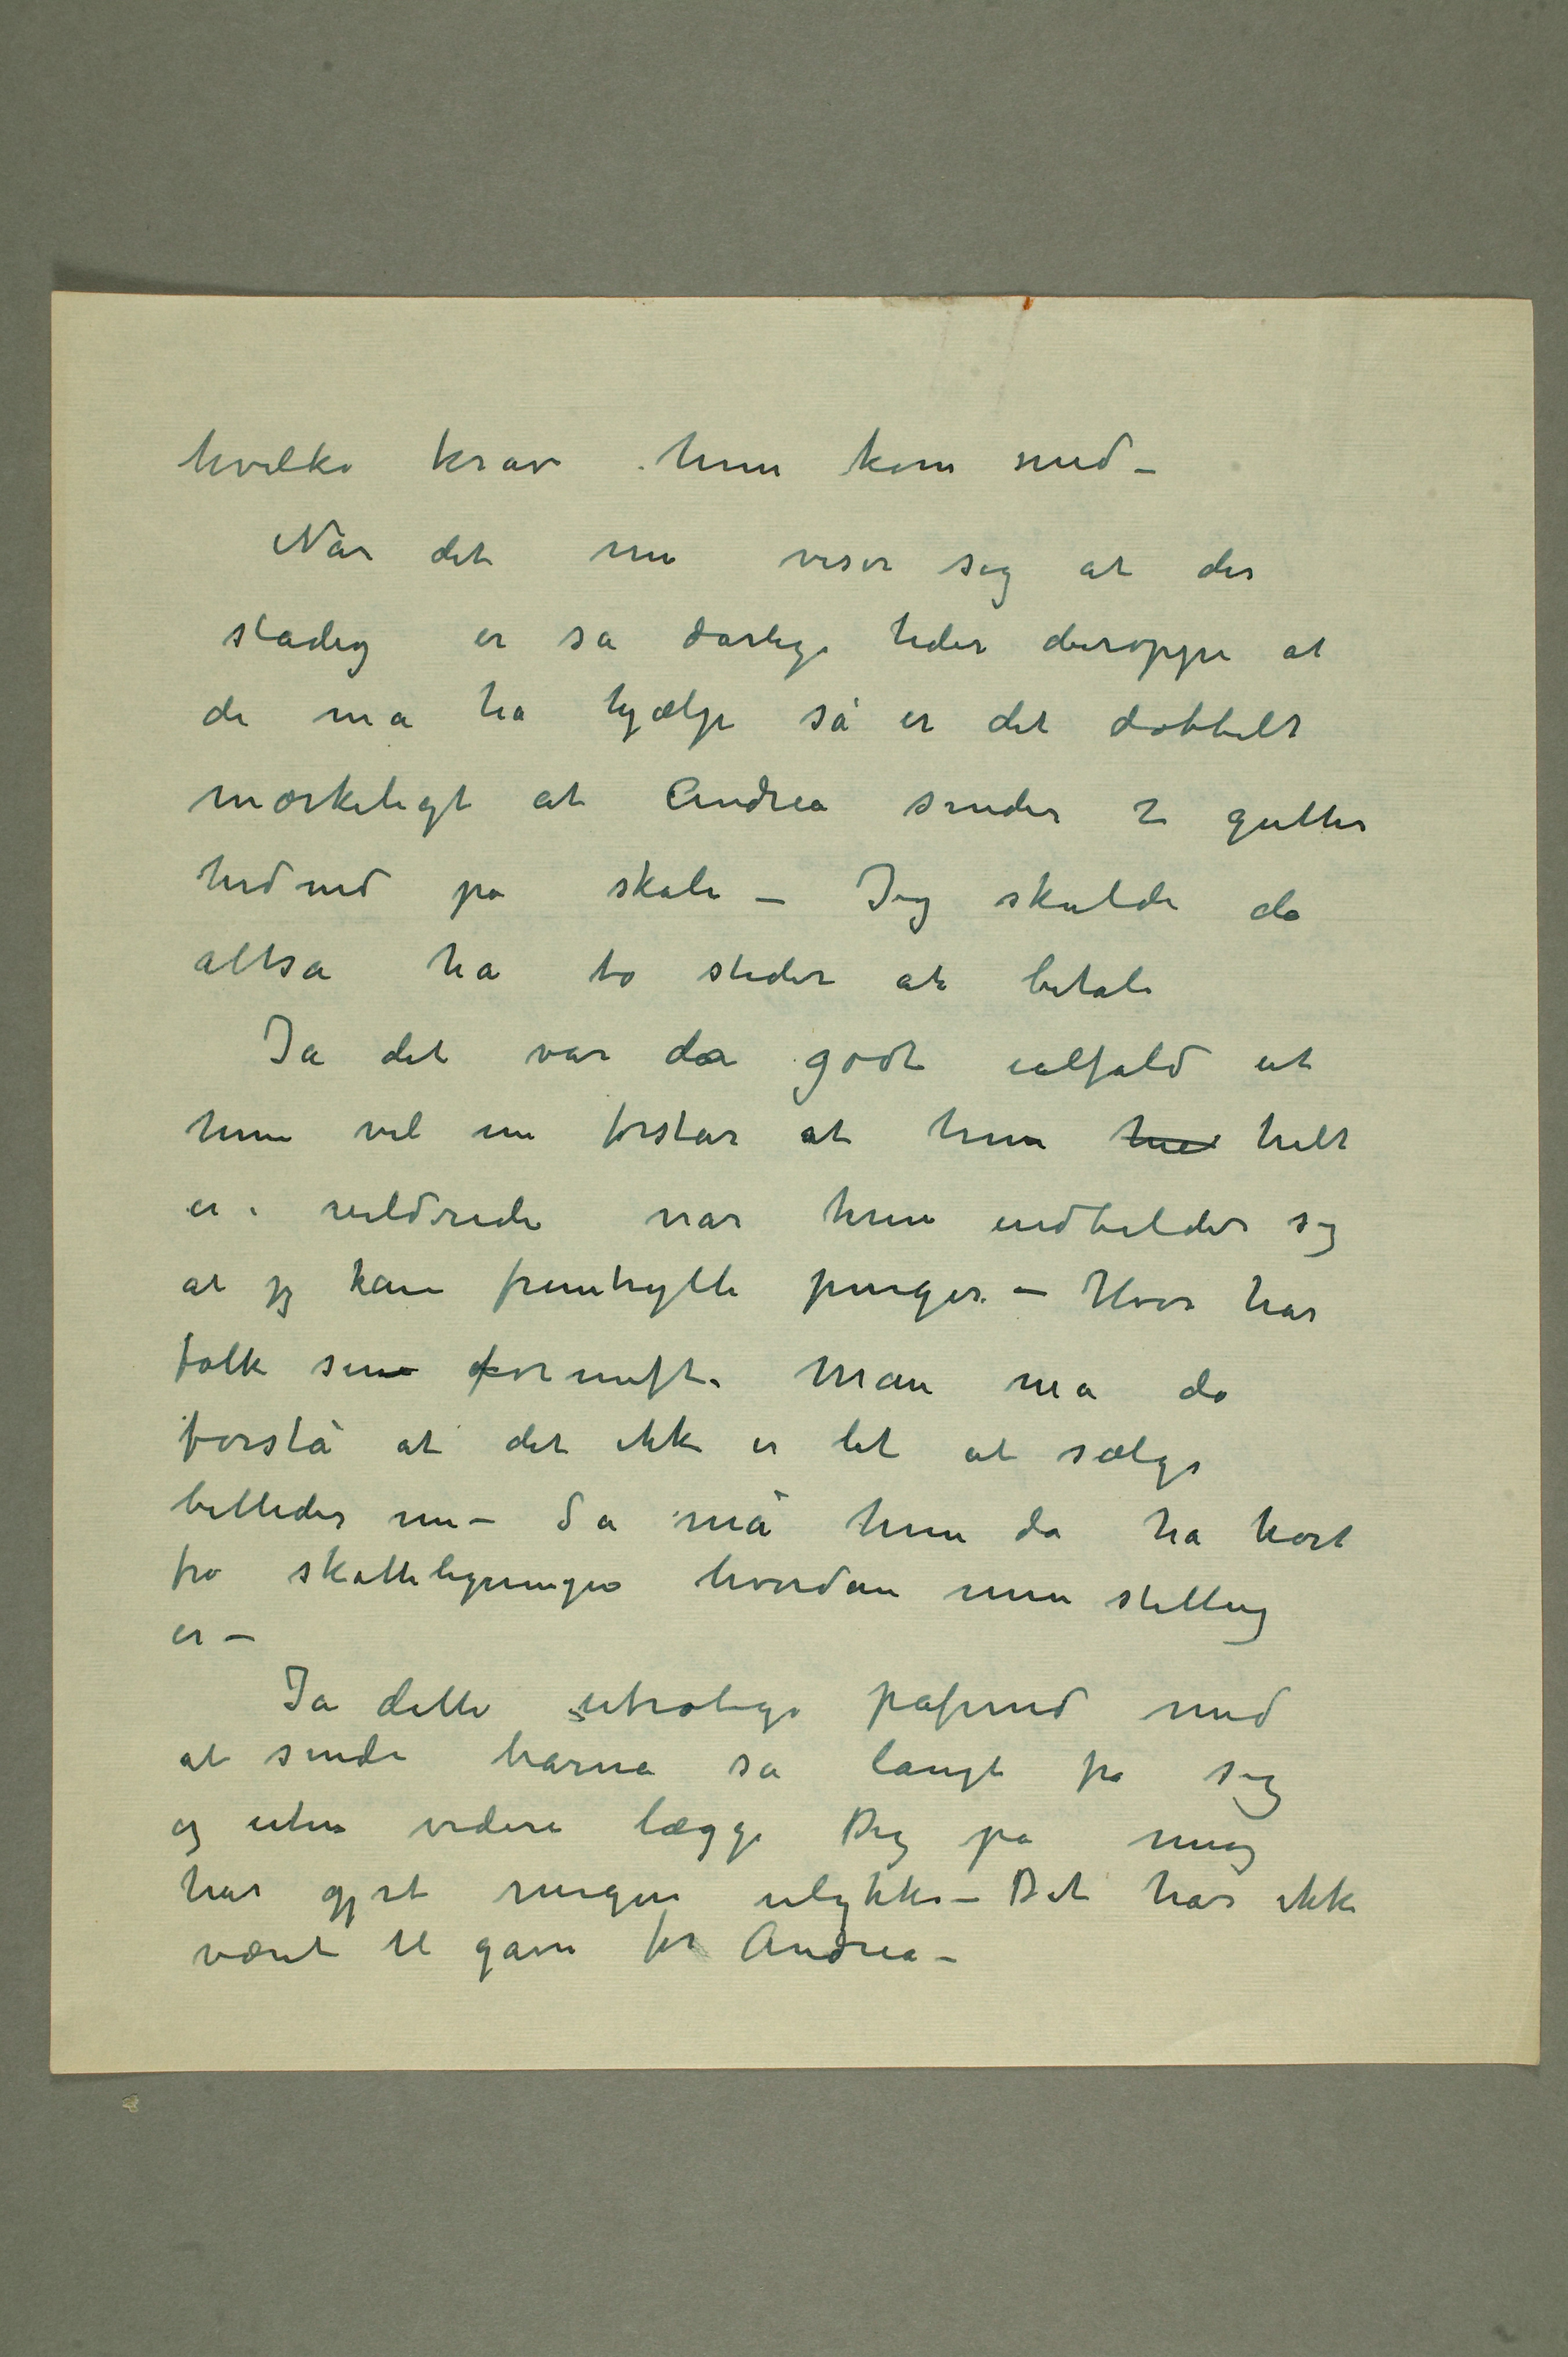 hvilke krav hun kom med –
Når det nu viser sig at der
stadig er så dårlige tider deroppe at
de må ha hjælp så er det dobbelt
mærkeligt at Andrea sender 2 gutter
hid ned på skole – Jeg skulde da
altså ha to steder at betale
Ja det var da godt ialfald at
hun vel nu forstår at hun helt
er i vildrede når hun indbilder sig
at jeg kan fremtrylle penger. – Hvor har
folk sin fornuft. Man må da
forstå at det ikke er let at sælge
billeder nu – Så må hun da ha hørt
fra skatteligningen hvordan min stilling
er –
Ja dette utrolige påfund med
at sende barna så langt fra sig
og uten videre lægge Dig på mig
har gjort megen ulykke – Det har ikke
været til gavn for Andrea –